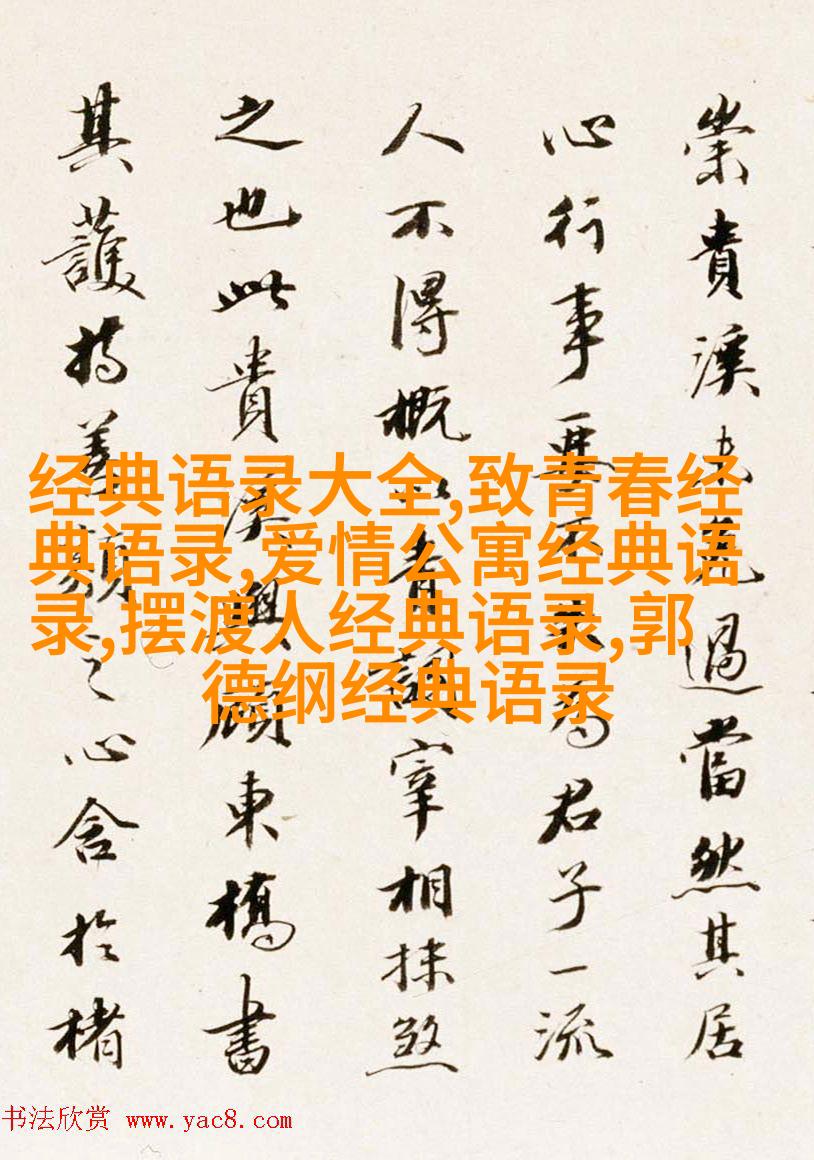 崇貴溪未免過當然其居
心行事要不失爲君子一流
人不得概以青詞宰相抹煞
之也此貴溪與顧東橋書
其護持善類之心含於楮
经典语录大全,致青春经
典语录,爱情公寓经典语
录,摆渡人经典语录,郭
德纲经典语录
书法欣赏 www.yac8.com